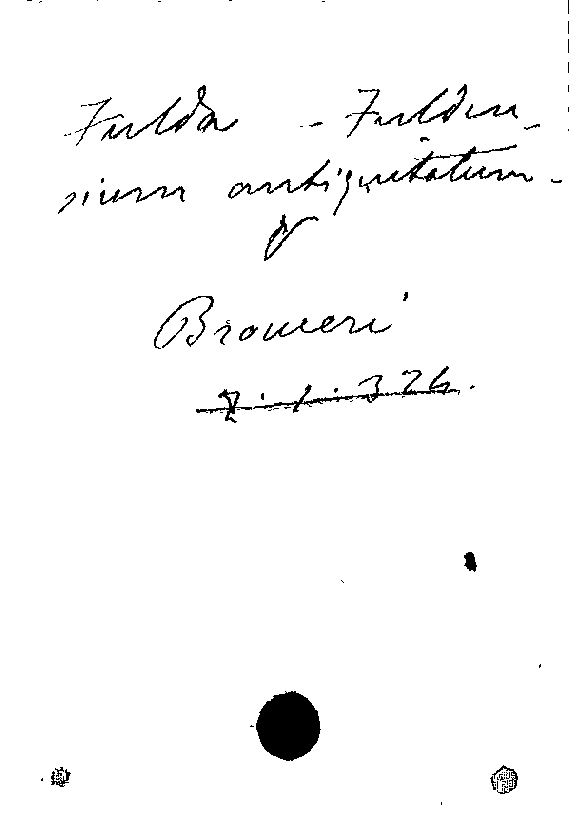 Fulda - Fulden-
sium antiquitatum -
Broweri
7.1.324.